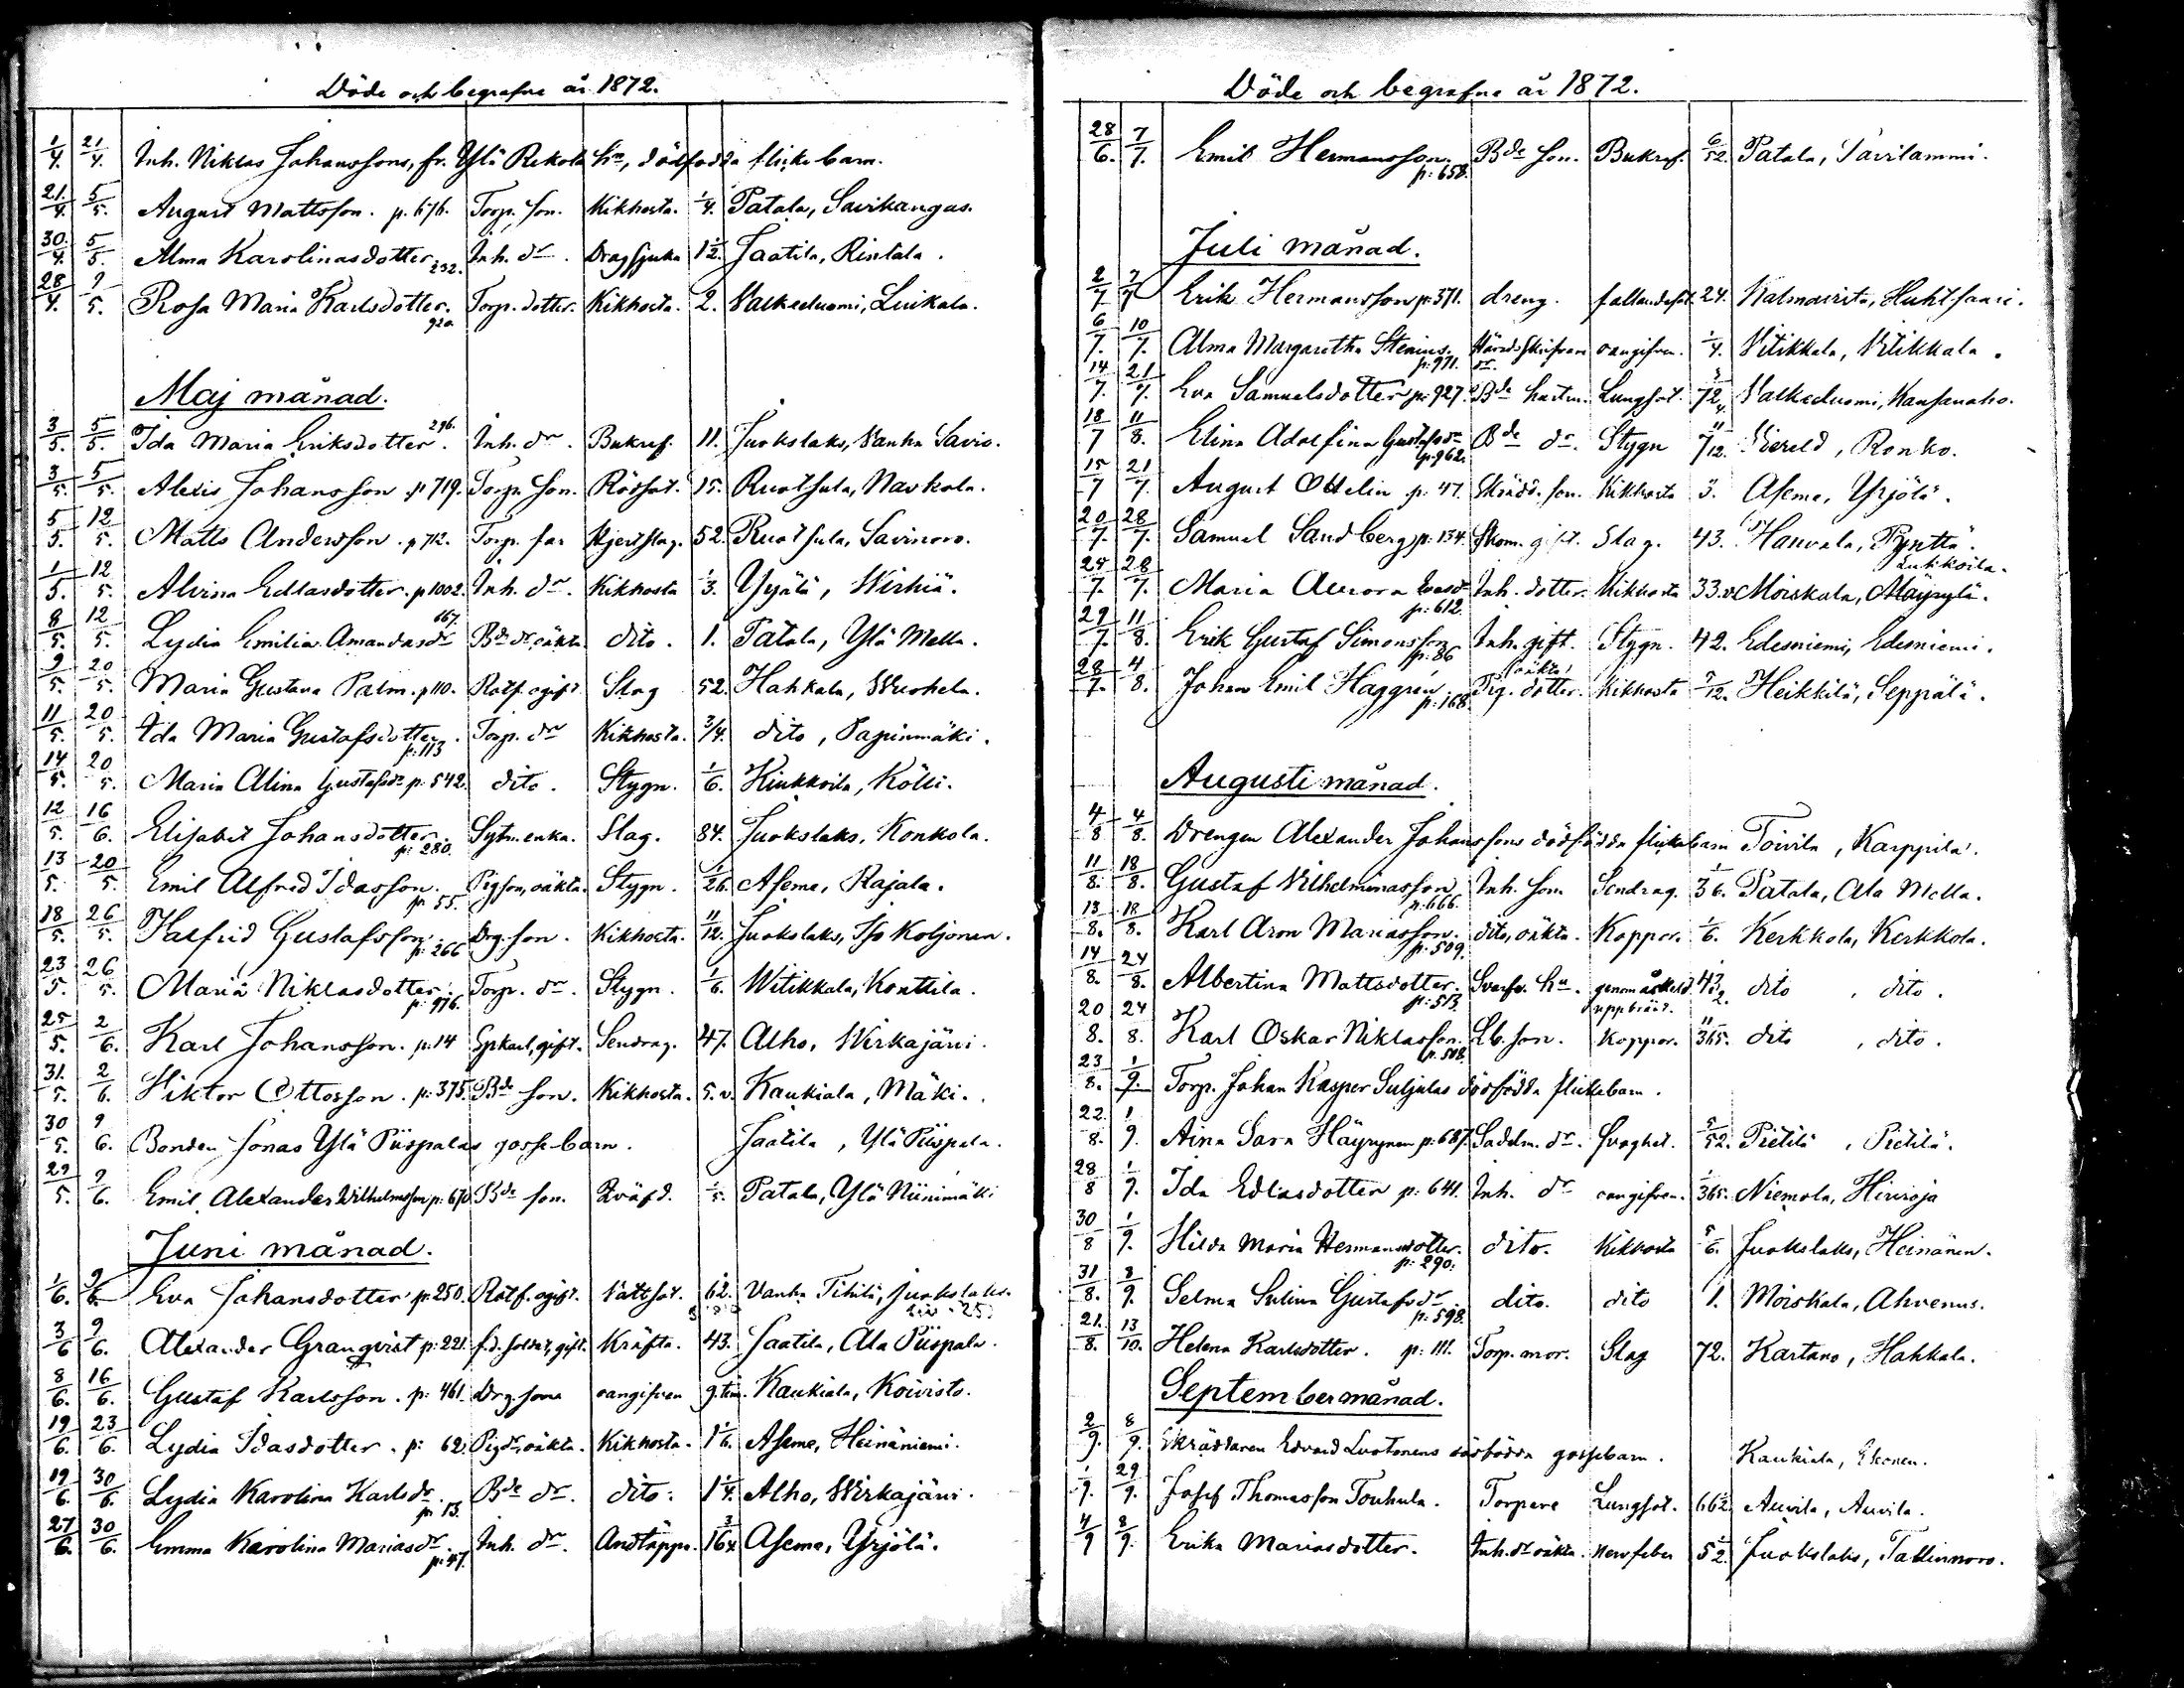 Döde och begrafne år 1872.
1/4. 21/4. Inh. Niklas Johanssons, fr. Ylä Rekola hn, dödfödda flicke barn.
21./4. 5/5. August Mattsson. p. 676. Torp. son. Kikhosta. 1/4. Patala, Savikangas.
30./4. 5/5. Alma Karolinasdotter. 232. Inh. dr. Dragsjuka 1 1/2. Jaatila, Rintala.
28/4. 9/5. Rosa Maria Karlsdotter. 920. Torp. dotter. Kikhosta. 2. Valkeduomi, Liukala.
Maj månad.
3/5. 5/5. Ida Maria Eriksdotter. 296. Inh. dr. Bukref. 11. Juokslaks, Vanha Savio.
3/5. 5/5. Alexis Johansson p 719. Torp. son. Rödsot. 15. Ruotsula, Naukola.
5/5. 12/5. Matts Andersson. p 712. Torp. far Hjertslag. 52. Ruotsula, Savinoro.
1/5. 12/5. Alvina Edlasdotter. p 1002. Inh. dr. Kikhosta 1/3. Yyälä, Wirhiä.
8/5. 12/5. Lydia Emilia Amandasdr 667. Bde dr, oäkta dito. 1. Patala, Ylä Mella.
9/5. 20/5. Maria Gustava Palm. p 110. Rotf. ogift Slag 52. Hahkala, Wuohela.
11/5. 20/5. Ida Maria Gustafsdotter. p: 113 Torp. dr Kikhosta. 3/4. dito, Papinmäki.
14/5. 20/5. Maria Alina Gustafsdr p: 542. dito. Stygn. 1/6. Kiukkoila, Kölli.
12/5. 16/6. Elisabet Johansdotter. p: 280. Sytn. enka. Slag. 84. Juokslaks, Konkola.
13/5. 20/5. Emil Alfred Idasson. p: 55. Pigson, oäkta. Stygn. 1/26. Aseme, Rajala.
18/5. 26/5. Halfrid Gustafsson. p: 266 Drg. son. Kikhosta. 11/12. Juokslaks, Iso Koljonen.
23/5. 26/5. Maria Niklasdotter. p: 976. Torp. dr. Stygn. 1/6. Witikkala, Konttila.
25/5. 2/6. Karl Johansson. p: 14 Spkarl, gift. Sendrag. 47. Alho, Wirkajärvi.
31./5. 2/6. Viktor Ottosson. p: 375. Bde son. Kikhosta. 5. v. Kaukiala, Mäki.
30/5. 9/6. Bonden Jonas Ylä Piispalas gosse-barn. Jaatila, Ylä Piispala.
29/5. 9/6. Emil Alexander Wilhelmsson p: 670. Bde son. Qväfd. 1/5. Patala, Ylä Niinimäki
Juni månad.
1/6. 9/6. Eva Johansdotter p: 250. Rotf. ogift. Vattsot. 62. Vanha Tihilä, Juokslaks.
3/6 9/6. Alexander Granqvist p: 221. f.d. soldat, gift. Kräfta. 43. Jaatila, Ala Piispala.
8/6. 16/6. Gustaf Karlsson. p: 461. Drg. son oangifven 9 tim. Kaukiala, Koivisto.
19/6. 23/6. Lydia Idasdotter. p: 62. Pigdr, oäkta. Kikhosta. 1 1/6. Aseme, Heinäniemi.
19/6. 30/6. Lydia Karolina Karlsdr. p: 13. Bde dr. dito. 1 1/4. Alho, Wirkajärvi.
27/6. 30/6. Emma Karolina Mariasdr. p: 47. Inh. dr. Andtäppa. 16 3/4 Aseme, Yrjölä.
Döde och begrafne år 1872.
28/6. 7/7. Emil Hermansson. p: 658. Bde son. Bukref. 6/52. Patala, Savilammi.
Juli månad.
2/7 7/7 Erik Hermansson p: 371. dreng. fallandesot. 24. Kalmausita, Huhtsaari.
6/7. 10/7. Alma Margaretha Stenius. p: 971. Häradsskrifvare dr. oangifven. 1/4. Vitikkala, Vitikkala.
14/7. 21/7. Eva Samuelsdotter p: 927. Bde hustru. Lungsot. 72 3/4. Valkeduomi, Kansanaho.
18/7 11/8. Elina Adolfina Gustafsdr p. 962. Bde dr. Stygn 7 11/12. Viereld, Ronko.
15/7 21/7. August Ottelin p: 47. Skrädd. son. Kikhosta 3. Aseme, Yrjölä.
20/7. 28/7. Samuel Sandberg p: 134. Skom. gift. Slag. 43. Hauvala, Pynttä.
25/7. 28/7. Maria Aurora Evasdr p: 612. Inh. dotter. Kikhosta 33. v. Moiskala, Mäyrylä.
29/7. 11/8. Erik Gustaf Simonsson p: 86 Inh. gift. Stygn. 42. Edesniemi, Edesniemi.
28/7. 4/8. Johan Emil Haggrén p: 168. Pig. dotter. oäkta Kikhosta 7/12. Heikkilä, Seppälä.
Augusti månad.
4/8 4/8. Drengen Alexander Johanssons dödfödda flickebarn Toivila, Karppila.
11/8. 18/8. Gustaf Vilhelminasson p: 666. Inh. son Sendrag. 36. Patala, Ala Mella.
13/8. 18/8. Karl Aron Mariasson. p: 509. dito, oäkta. Koppor. 1/6. Kerkkola, Kerkkola.
14/8. 24/8. Albertina Mattsdotter. p: 513. Svarfv. hu. genom åskeld uppbränd. 43 1/2. dito, dito.
20/8. 24/8. Karl Oskar Niklasson. p. 508. Lb. son. Koppor. 11/365. dito, dito.
23/8. 1/9. Torp. Johan Kasper Suljalas dödfödda flickebarn.
22/8. 1/9. Aina Sara Häyrynen p: 687. Sadelm. dr. Svaghet. 2/52. Pietilä, Pietilä.
28/8 1/9. Ida Edlasdotter p: 641. Inh. dr oangifven. 1/365. Niemola, Hiiroja
30/8 1/9. Hilda Maria Hermansdotter. p: 290. dito. Kikhosta 5/6. Juokslaks, Heinänen.
31/8. 8/9. Selma Sulina Gustafsdr p: 598. dito. dito 1. Moiskala, Ahvenus.
21./8. 13/10. Helena Karlsdotter. p: 111. Torp. mor. Slag 72. Kartano, Hahkala.
September månad.
2/9. 8/9. Skräddaren Edvard Luotonens dödfödda gossebarn. Kaukiala, Ekonen.
1/9. 29/9. Josef Thomasson Touhula. Torpare Lungsot. 66 1/2. Auvila, Auvila.
4/9 8/9. Erika Mariasdotter. Inh. dr oäkta. Nervfeber 5 1/2. Juokslaks, Tallinnoro.